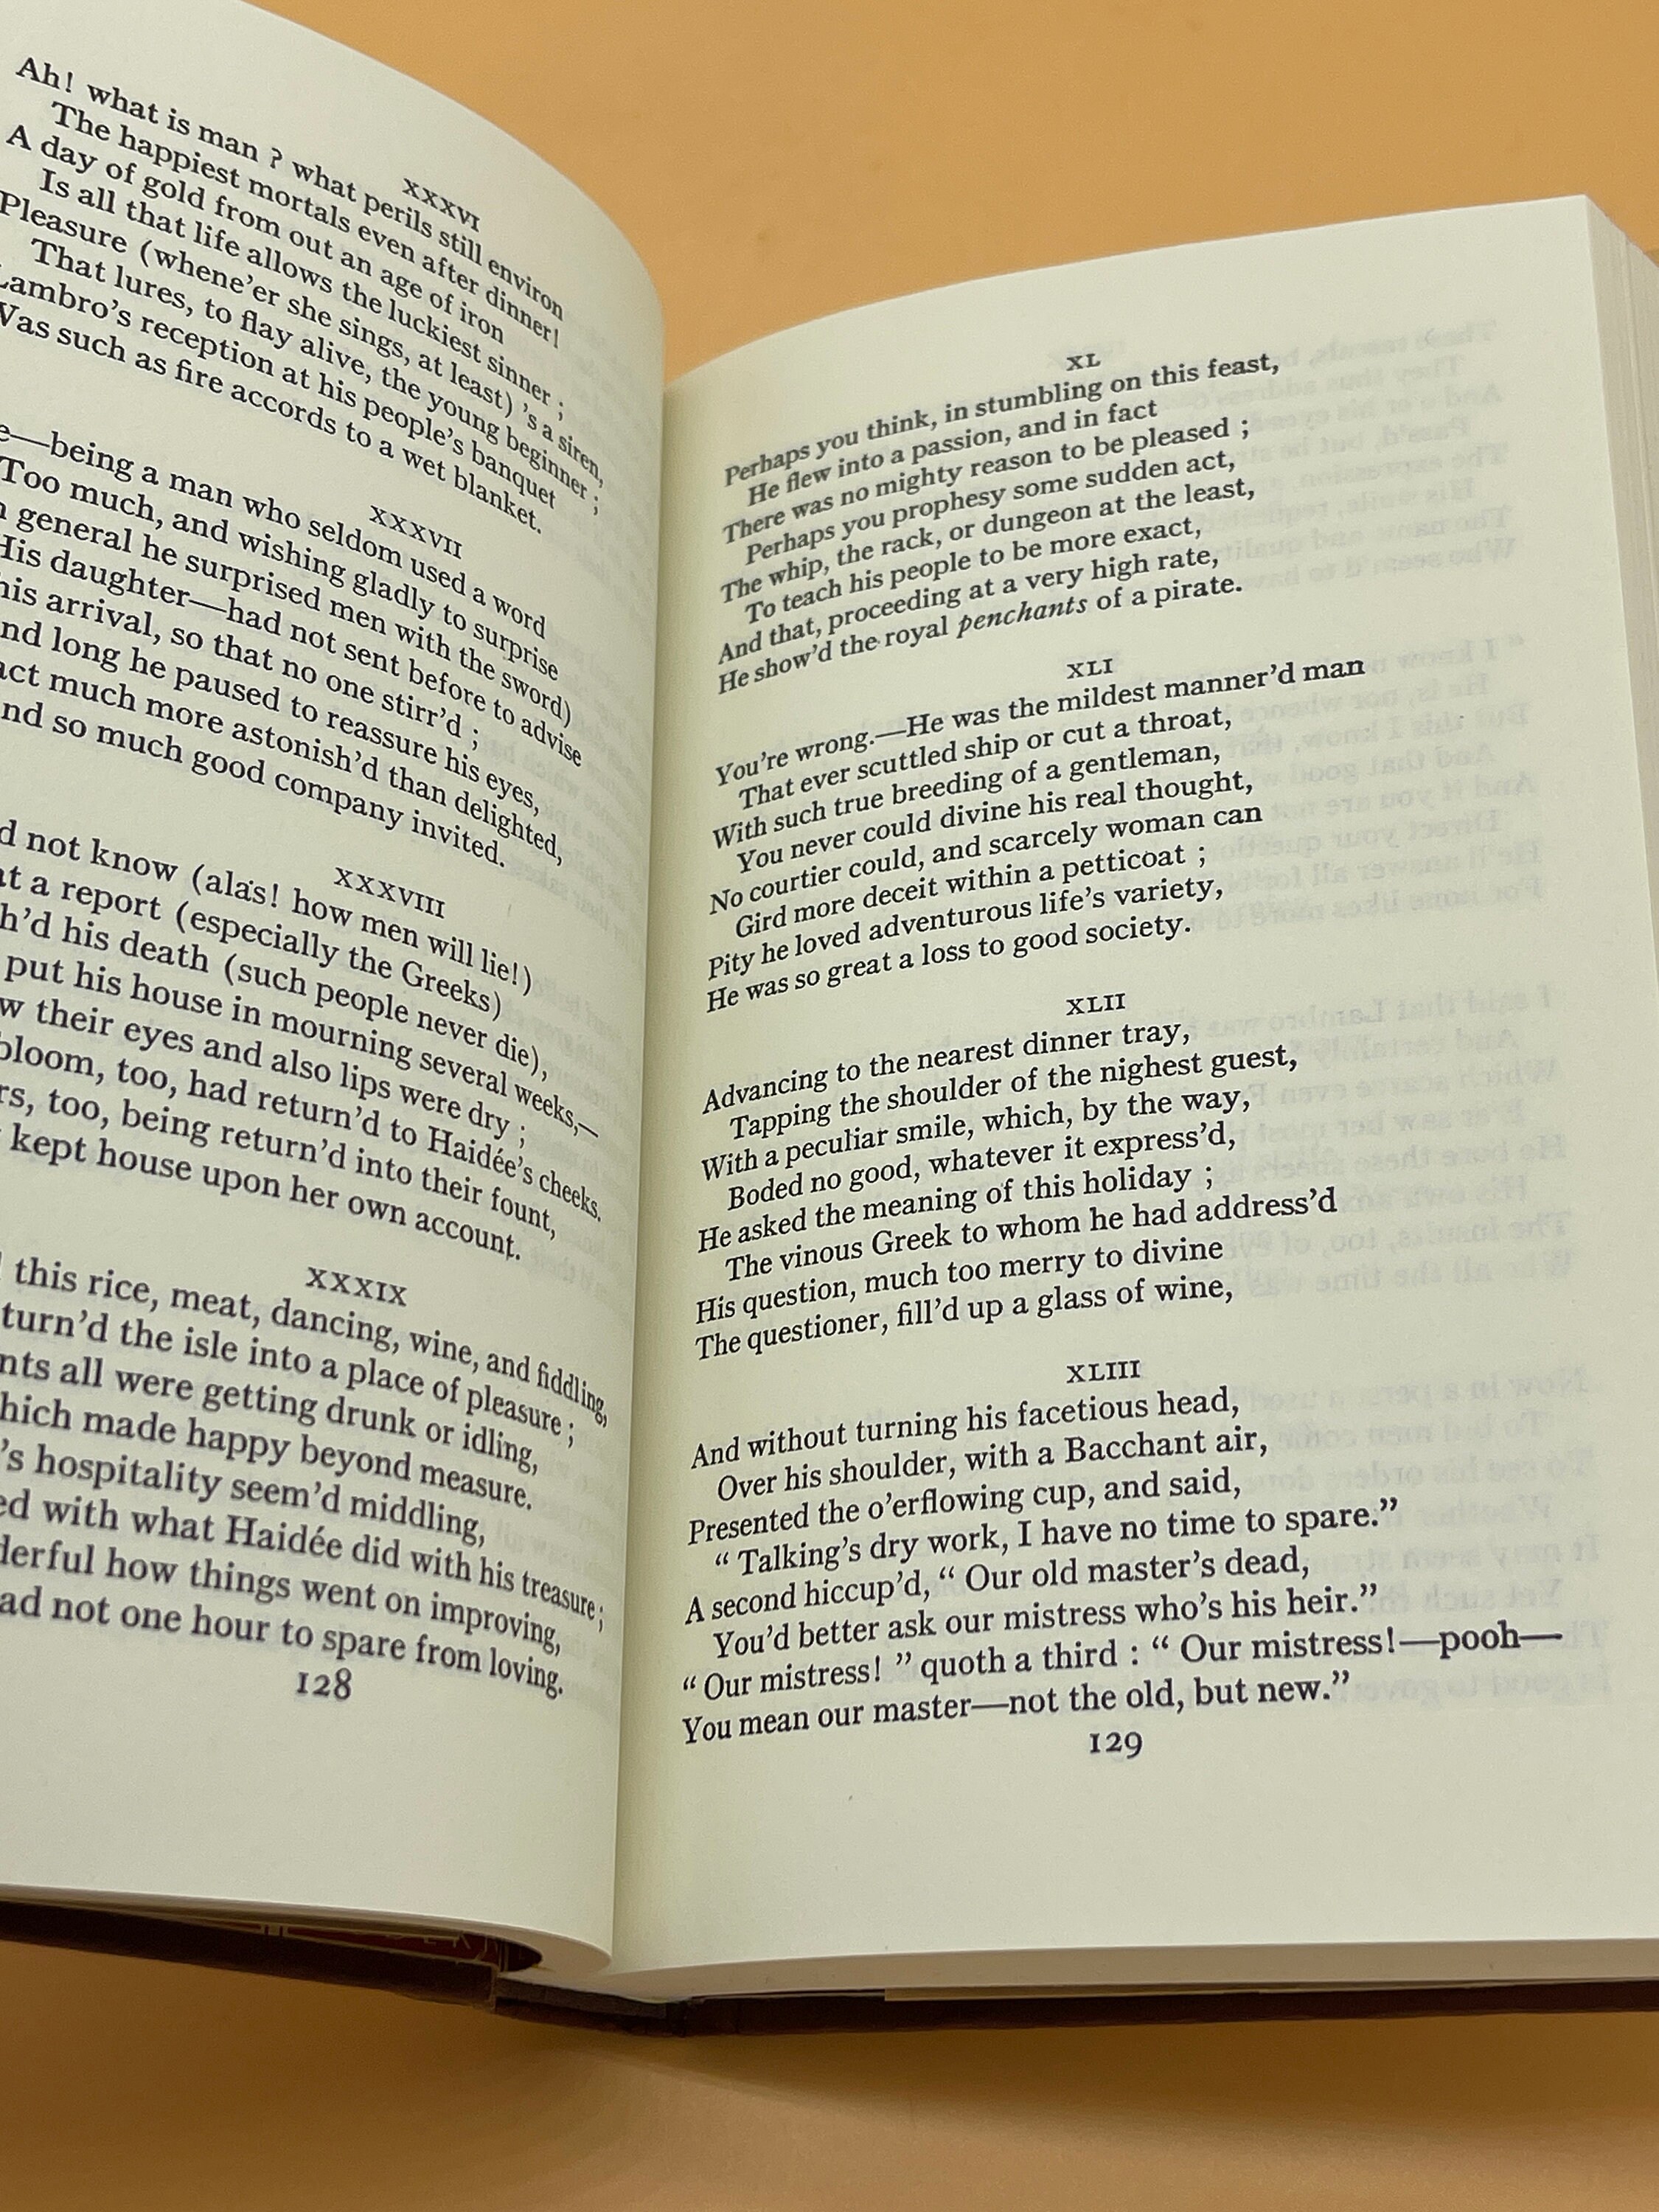 XXXVI
Ah! what is man ? what perils still environ
The happiest mortals even after dinner!
A day of gold from out an age of iron
Is all that life allows the luckiest sinner ;
Pleasure (whene'er she sings, at least) 's a siren,
That lures, to flay alive, the young beginner ;
Lambro's reception at his people's banquet
Was such as fire accords to a wet blanket.
XXXVII
—being a man who seldom used a word
Too much, and wishing gladly to surprise
general he surprised men with the sword)
His daughter—had not sent before to advise
his arrival, so that no one stirr'd ;
nd long he paused to reassure his eyes,
act much more astonish'd than delighted,
nd so much good company invited.
XXXVIII
d not know (alas! how men will lie!)
at a report (especially the Greeks)
h'd his death (such people never die),
put his house in mourning several weeks,—
w their eyes and also lips were dry ;
bloom, too, had return'd to Haidée's cheeks.
rs, too, being return'd into their fount,
kept house upon her own account.
XXXIX
this rice, meat, dancing, wine, and fiddling,
turn'd the isle into a place of pleasure ;
nts all were getting drunk or idling,
hich made happy beyond measure.
's hospitality seem'd middling,
ed with what Haidée did with his treasure ;
derful how things went on improving,
ad not one hour to spare from loving.
128
XL
Perhaps you think, in stumbling on this feast,
He flew into a passion, and in fact
There was no mighty reason to be pleased ;
Perhaps you prophesy some sudden act,
The whip, the rack, or dungeon at the least,
To teach his people to be more exact,
And that, proceeding at a very high rate,
He show'd the royal penchants of a pirate.
XLI
You're wrong.—He was the mildest manner'd man
That ever scuttled ship or cut a throat,
With such true breeding of a gentleman,
You never could divine his real thought,
No courtier could, and scarcely woman can
Gird more deceit within a petticoat ;
Pity he loved adventurous life's variety,
He was so great a loss to good society.
XLII
Advancing to the nearest dinner tray,
Tapping the shoulder of the nighest guest,
With a peculiar smile, which, by the way,
Boded no good, whatever it express'd,
He asked the meaning of this holiday ;
The vinous Greek to whom he had address'd
His question, much too merry to divine
The questioner, fill'd up a glass of wine,
XLIII
And without turning his facetious head,
Over his shoulder, with a Bacchant air,
Presented the o'erflowing cup, and said,
“ Talking's dry work, I have no time to spare.”
A second hiccup'd, “ Our old master's dead,
You'd better ask our mistress who's his heir.”
“ Our mistress! ” quoth a third : “ Our mistress!—pooh—
You mean our master—not the old, but new.”
129